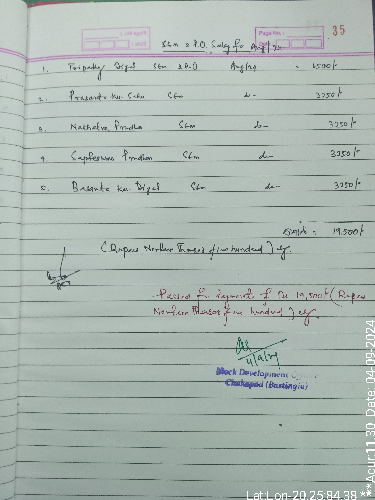 Page No.: 35
Stm & P.O. Salary for Aug/24
1. Digal Stm & P.O Aug/24 = 6500/-
2. Prasanta Ku. Sahu Stm do- 3250/-
3. Pradhan Stm do- 3250/-
4. Pradhan Stm do- 3250/-
5. Basanta Ku. Digal Stm do- 3250/-
= 19,500/-
(Rupees Nineteen Thousand five hundred) only
Passed for payment of Rs 19,500/- (Rupees
Nineteen Thousand five hundred) only
Block Development
Chakapad (Bastingia)
Lat Lon-20.25,84.38 *** Acur:11.30, Date: 04-09-2024